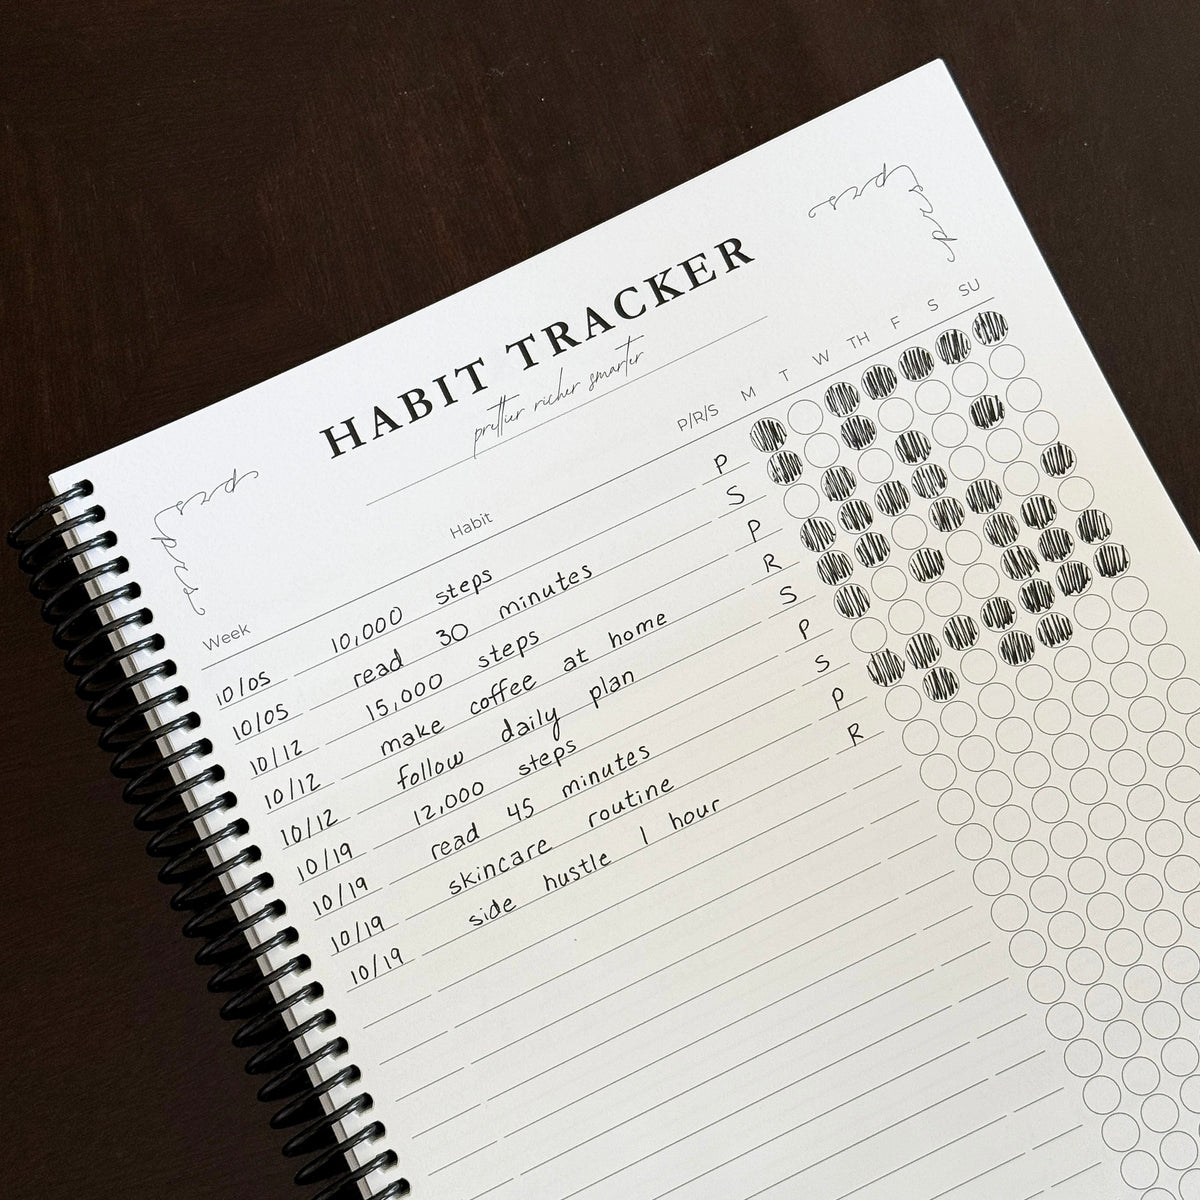 prs
prs
HABIT TRACKER
prettier richer smarter
prs
prs
Week Habit P/R/S M T W TH F S SU
10/05 10,000 steps P
10/05 read 30 minutes S
10/12 15,000 steps P
10/12 make coffee at home R
10/12 follow daily plan S
10/19 12,000 steps P
10/19 read 45 minutes S
10/19 skincare routine P
10/19 side hustle 1 hour R